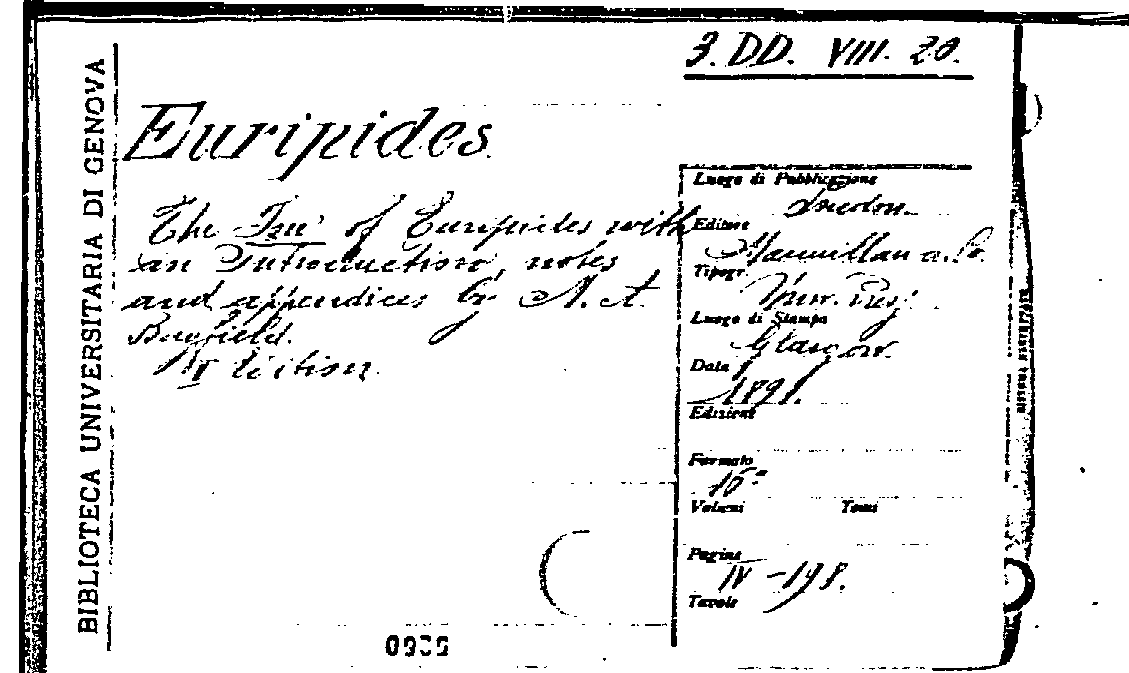 3. DD. VIII. 20.
BIBLIOTECA UNIVERSITARIA DI GENOVA
Euripides
The Ion of Euripides with
an Introduction, notes
and appendices by M. A.
Bayfield.
edition
Luogo di Pubblicazione
London
Editore
Macmillan a. Co.
Tipogr.
Luogo di Stampa
Glasgow
Data
1891.
Edizione
Formato
16°
Volumi Tomi
Pagine
IV - 198.
Tavole